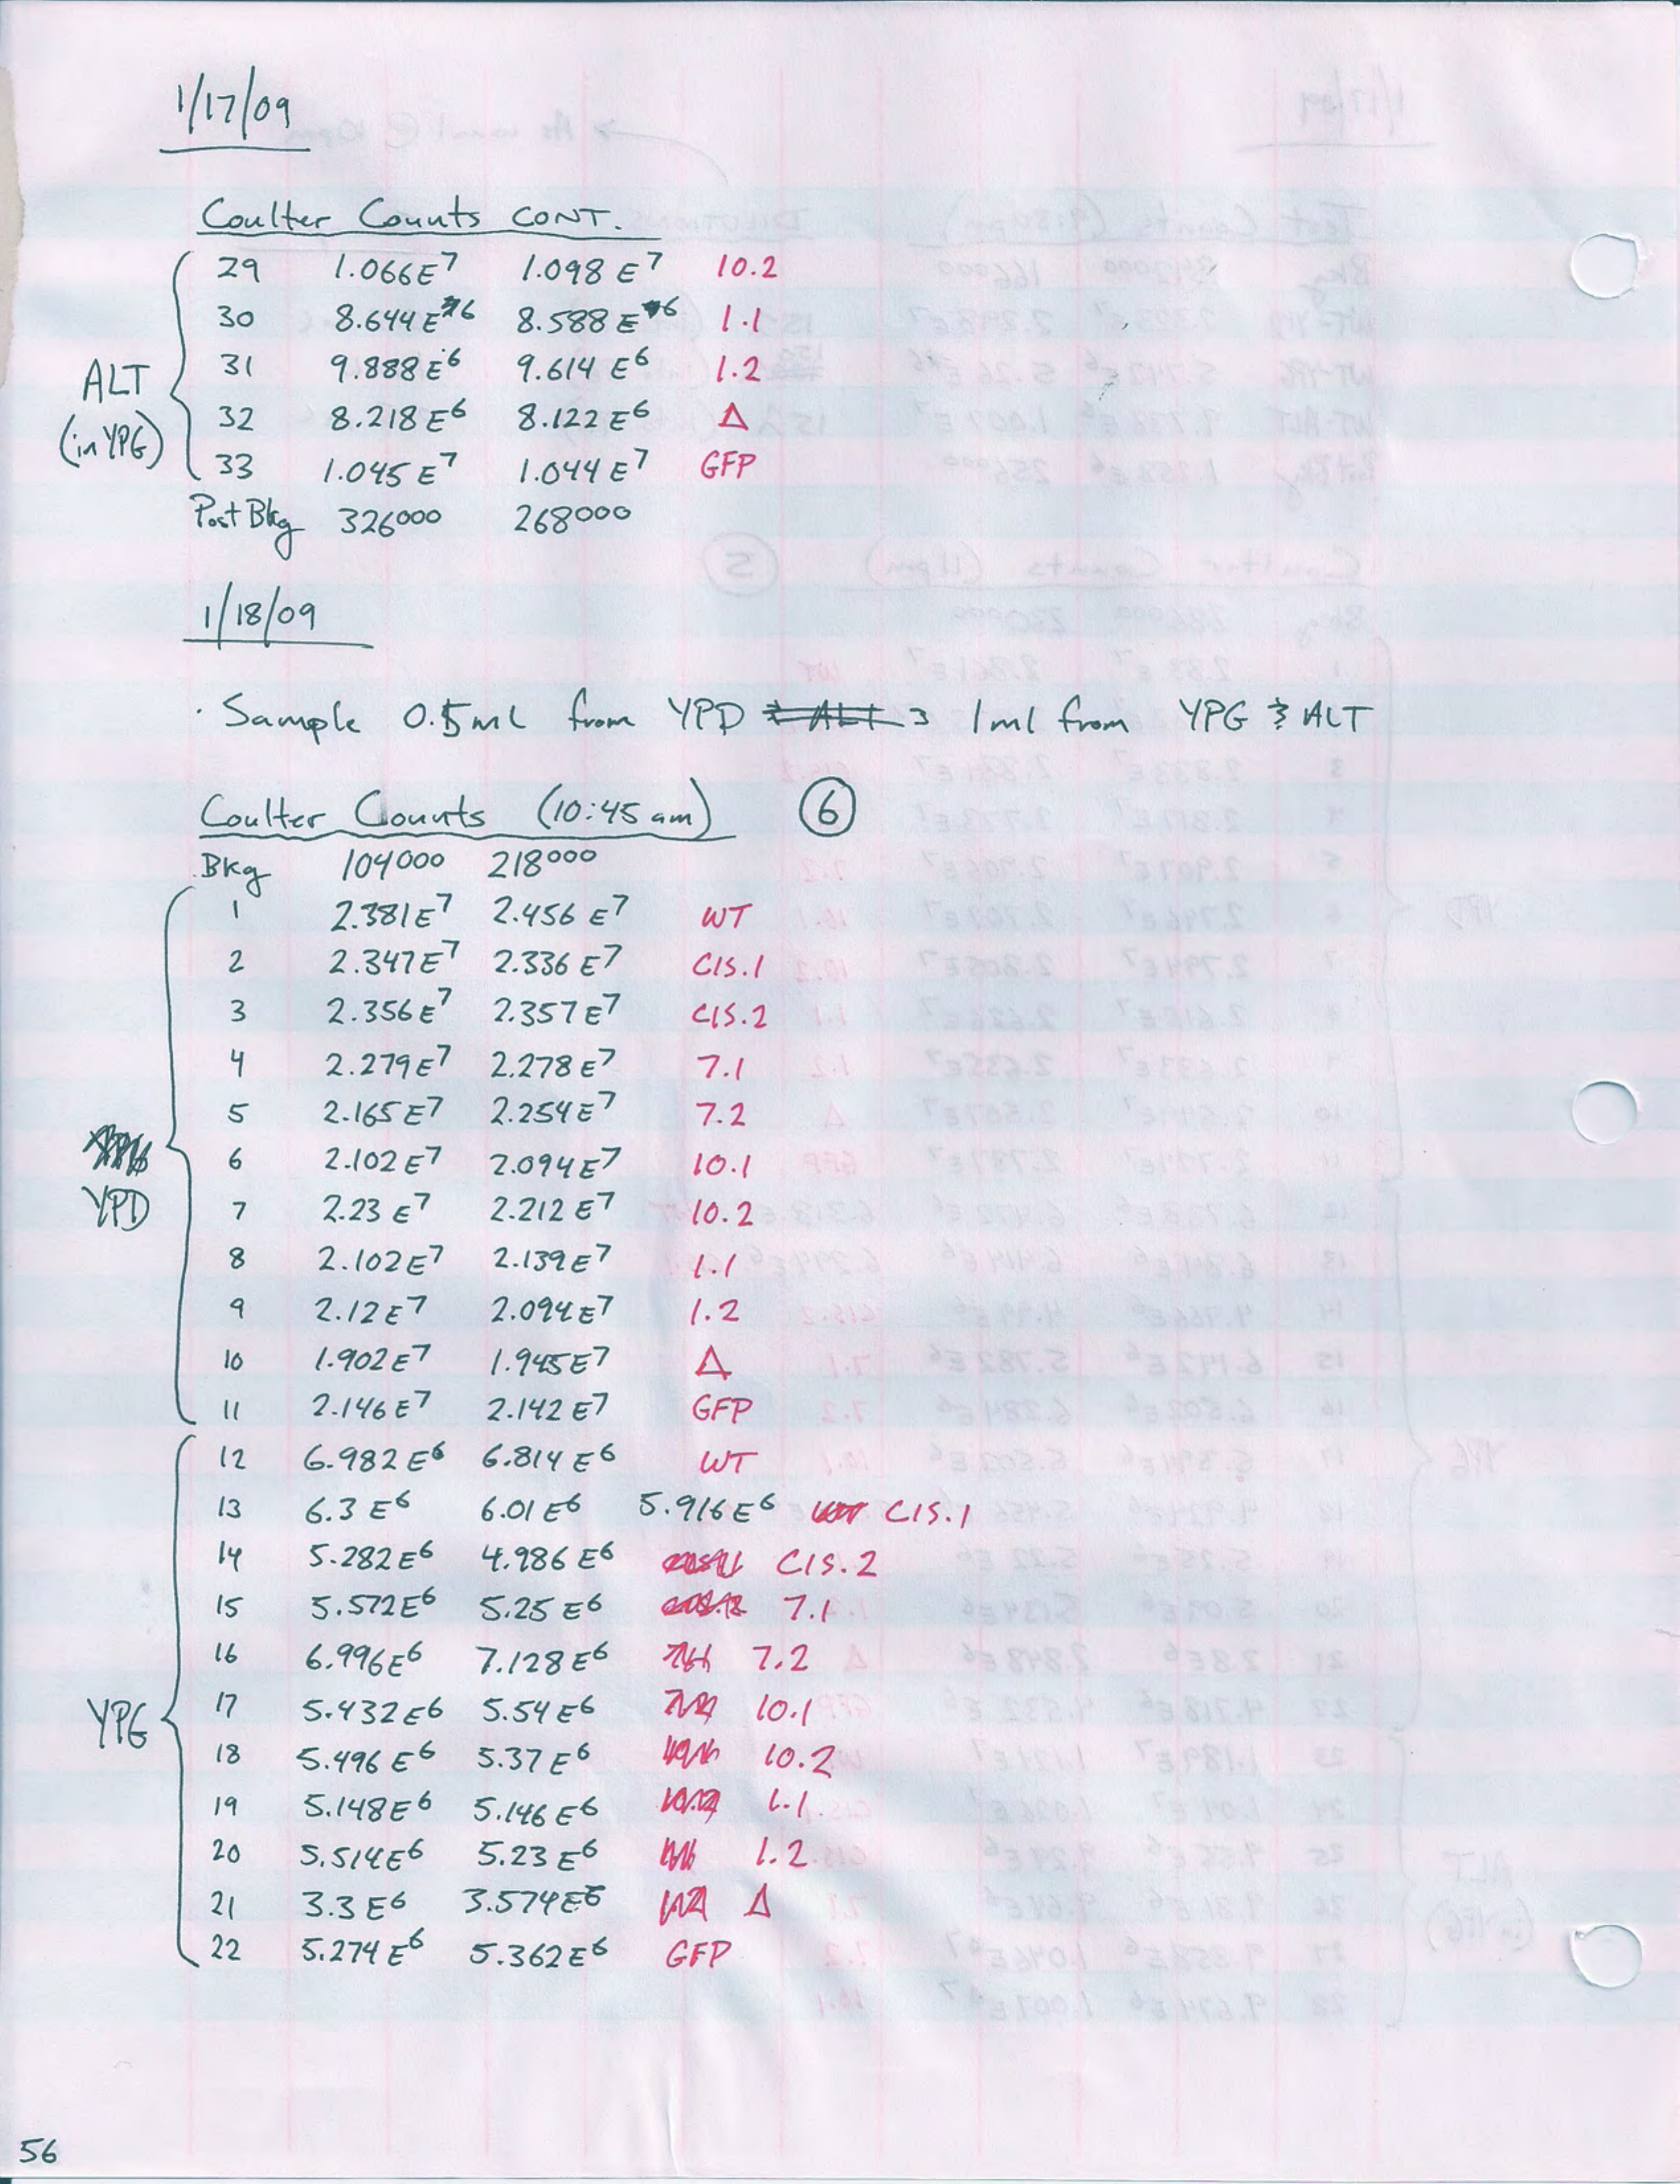 1/17/09
Coulter Counts CONT.
29 1.066E7 1.098E7 10.2
30 8.644E6 8.588E6 1.1
31 9.888E6 9.614E6 1.2
ALT
(in YPG)
32 8.218E6 8.122E6 Δ
33 1.045E7 1.044E7 GFP
Post Bkg 326000 268000
1/18/09
· Sample 0.5ml from YPD & ALT 1ml from YPG & ALT
Coulter Counts (10:45 am) 6
Bkg 104000 218000
1 2.381E7 2.456E7 WT
2 2.347E7 2.336E7 CIS.1
3 2.356E7 2.357E7 CIS.2
4 2.279E7 2.278E7 7.1
5 2.165E7 2.254E7 7.2
6 2.102E7 2.094E7 10.1
YPD
7 2.23E7 2.212E7 10.2
8 2.102E7 2.139E7 1.1
9 2.12E7 2.094E7 1.2
10 1.902E7 1.945E7 Δ
11 2.146E7 2.142E7 GFP
12 6.982E6 6.814E6 WT
13 6.3E6 6.01E6 5.916E6 WT CIS.1
14 5.282E6 4.986E6 CIS.2
15 5.572E6 5.25E6 7.1
16 6.996E6 7.128E6 7.2
YPG
17 5.432E6 5.54E6 10.1
18 5.496E6 5.37E6 10.2
19 5.148E6 5.146E6 1.1
20 5.514E6 5.23E6 1.2
21 3.3E6 3.574E6 Δ
22 5.274E6 5.362E6 GFP
56